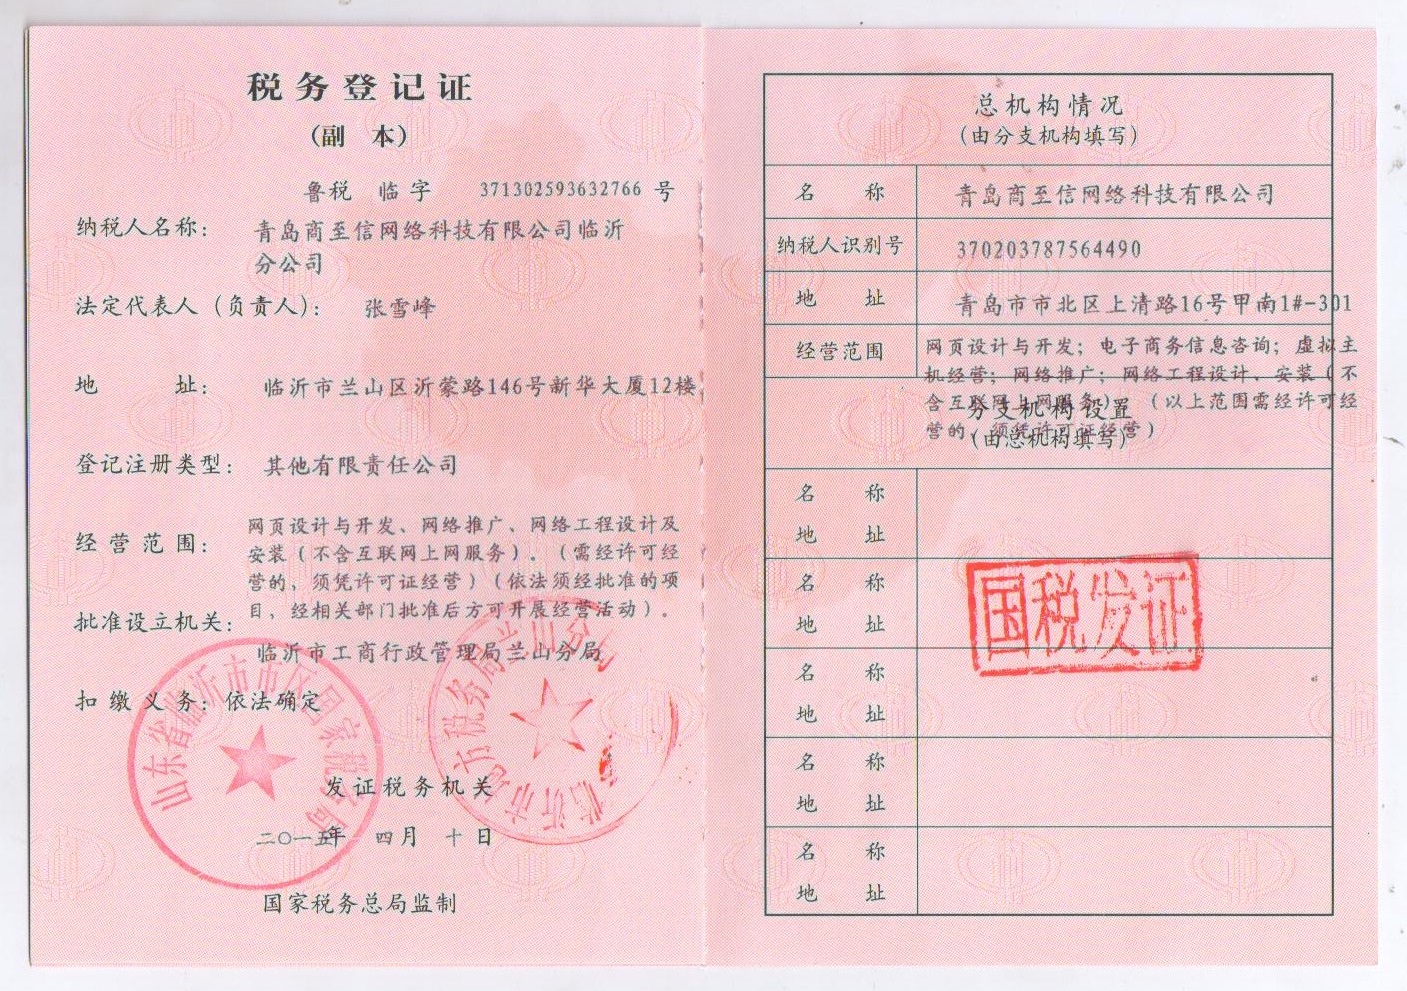 税务登记证
(副 本)
鲁税 临 字 371302593632766 号
纳税人名称: 青岛商至信网络科技有限公司临沂
分公司
法定代表人(负责人): 张雪峰
地 址: 临沂市兰山区沂蒙路146号新华大厦12楼
登记注册类型: 其他有限责任公司
经营范围: 网页设计与开发、网络推广、网络工程设计及
安装(不含互联网上网服务)。(需经许可经
营的,须凭许可证经营)(依法须经批准的项
目,经相关部门批准后方可开展经营活动)。
批准设立机关:
临沂市工商行政管理局兰山分局
扣缴义务: 依法确定
山东省临沂市市区国家税务局
临沂市地方税务局兰山分局
发证税务机关
二〇一五年 四月 十日
国家税务总局监制
总机构情况
(由分支机构填写)
名 称 青岛商至信网络科技有限公司
纳税人识别号 370203787564490
地 址 青岛市市北区上清路16号甲南1#-301
经营范围 网页设计与开发;电子商务信息咨询;虚拟主
机经营;网络推广;网络工程设计、安装(不
含互联网上网服务)。(以上范围需经许可经
营的,须凭许可证经营)
分支机构设置
(由总机构填写)
名 称
地 址
名 称
地 址
名 称
地 址
名 称
地 址
名 称
地 址
国税发证